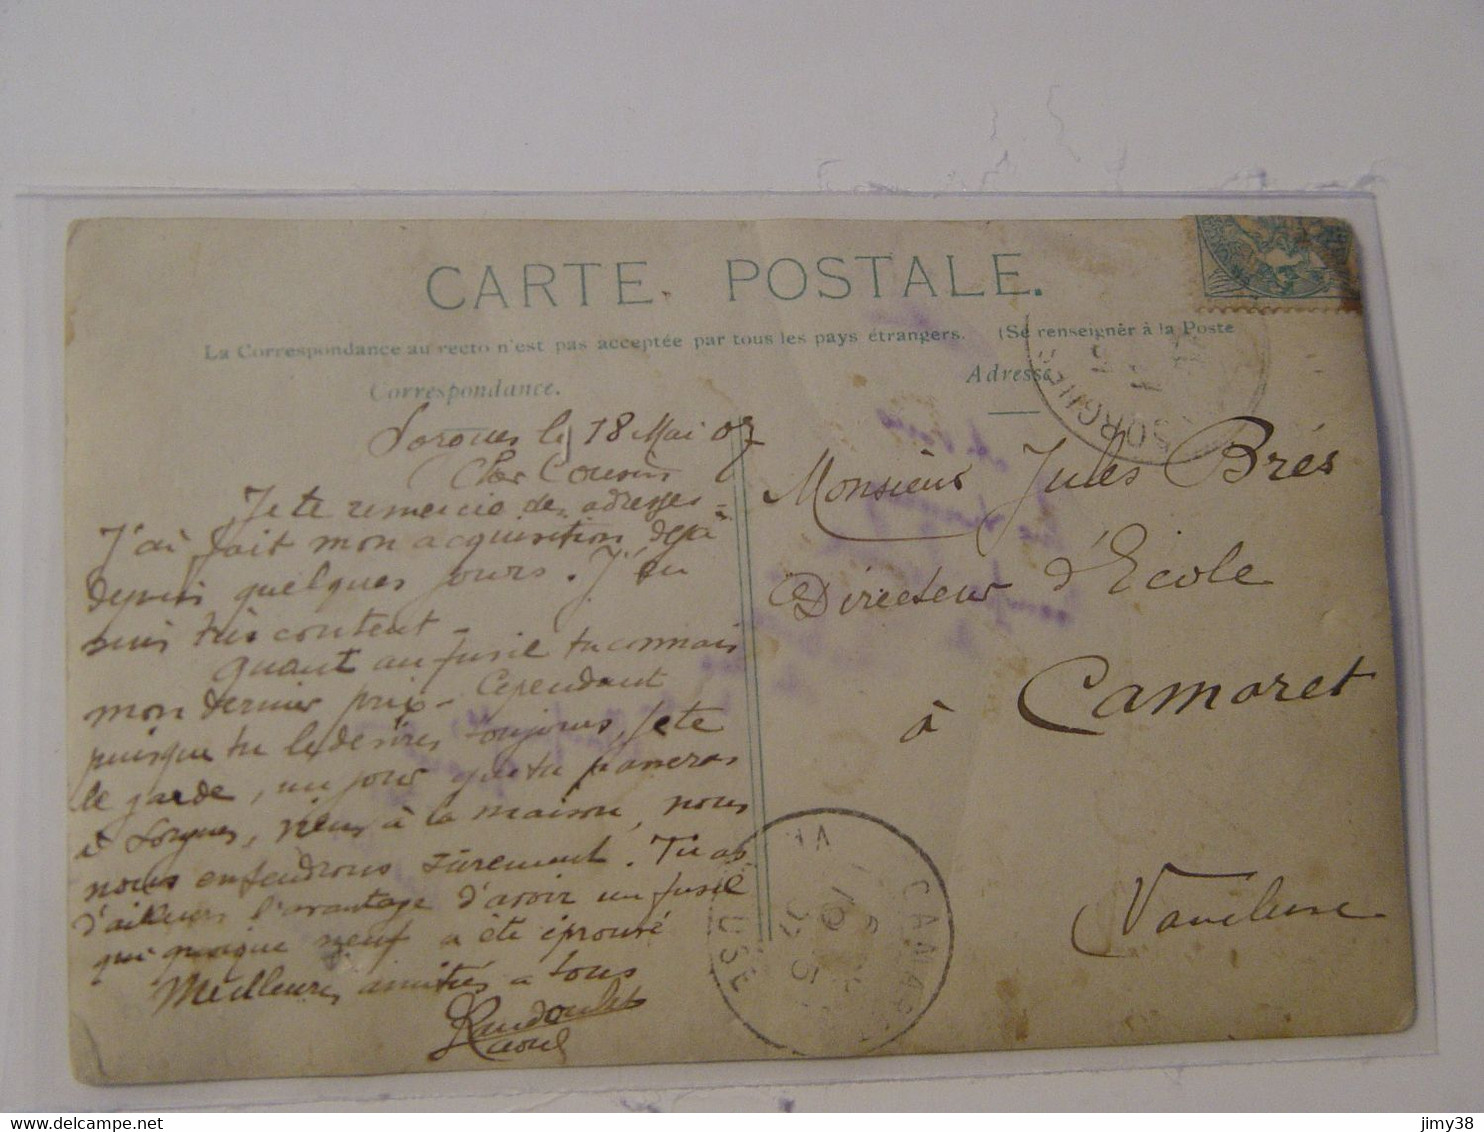 CARTE POSTALE.
La Correspondance au recto n'est pas acceptée par tous les pays étrangers. (Se renseigner à la Poste
Correspondance.
Adresse
SORGUES
Sorgues le 18 Mai 07
Cher Cousin
Je te remercie des adresses -
J'ai fait mon acquisition déjà
depuis quelques jours. J'en
suis très content -
Quant au fusil tu connais
mon dernier prix - Cependant
puisque tu le désires toujours, je te
le garde, un jour que tu passeras
à Sorgues, viens à la maison, nous
nous entendrons sûrement. Tu as
d'ailleurs l'avantage d'avoir un fusil
qui quoique neuf a été éprouvé
Meilleures amitiés a tous
Raoul
Monsieur Jules Brés
Directeur d'Ecole
à Camaret
Vaucluse
CAMAR
USE
jimy38